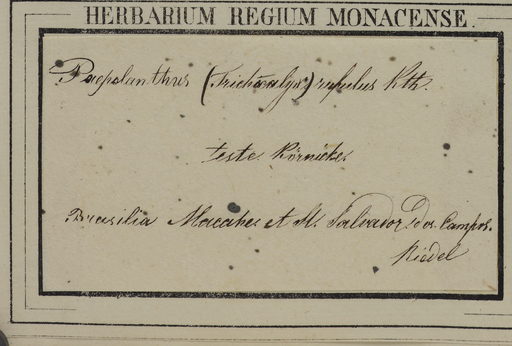 HERBARIUM REGIUM MONACENSE.
Paepalanthus (Trichocalyx) rufulus Kth.
teste Körnicke.
Brasilia Macahe et St. Salvador dos Campos.
Riedel